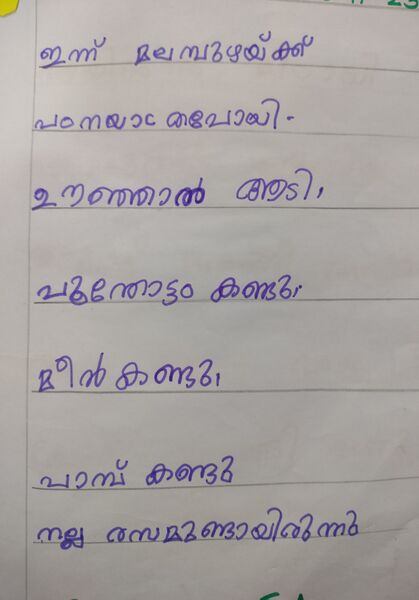 ഇന്ന് മലമ്പുഴയ്ക്ക്
പഠനയാത്രപോയി.
ഊഞ്ഞാൽ ആടി,
പൂന്തോട്ടം കണ്ടു.
മീൻ കണ്ടു,
പാമ്പ് കണ്ടു
നല്ല രസമുണ്ടായിരുന്നു